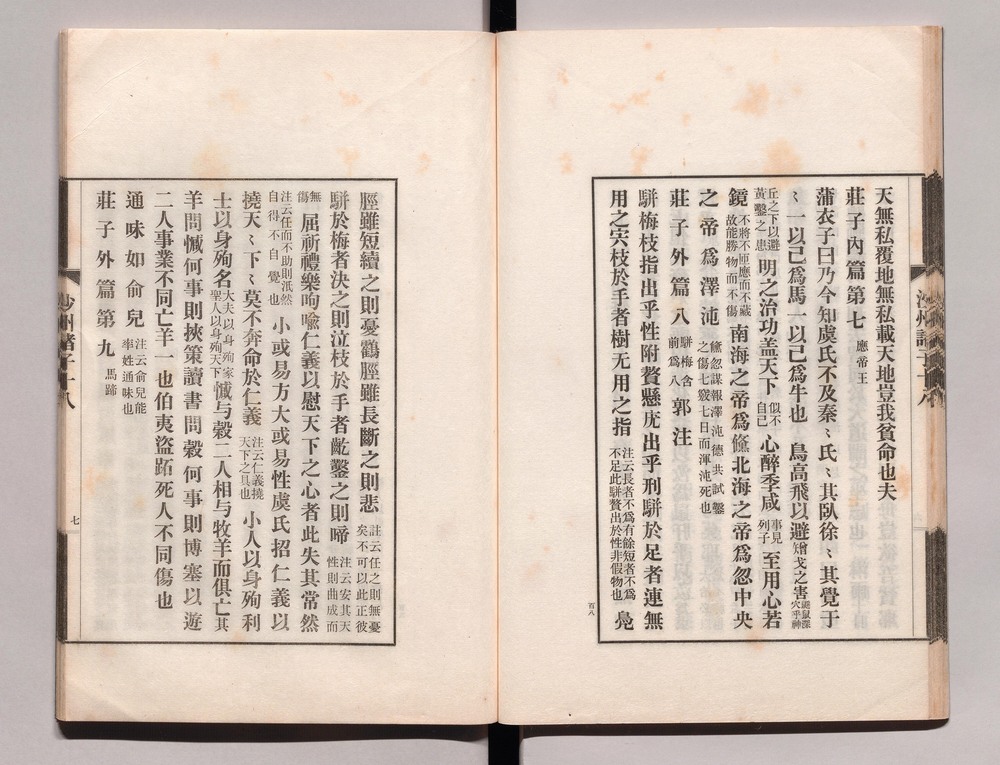 天無私覆地無私載天地豈我貧命也夫
莊子內篇第七 應帝王
蒲衣子曰乃今知虞氏不及秦〻氏〻其臥徐〻其覺于
〻一以己爲馬一以己爲牛也 鳥高飛以避矰戈之害 鼷鼠深穴乎神
丘之下以避黃鑿之患 明之治功盖天下 似不自己 心醉季咸 事見列子 至用心若
鏡 不將不迎應而不藏故能勝物而不傷 南海之帝爲儵北海之帝爲忽中央
之帝爲渾沌 儵忽謀報渾沌德共試鑿之傷七竅七日而渾沌死也
莊子外篇八 駢梅含前爲八 郭注
駢梅枝指出乎性附贅懸疣出乎刑駢於足者連無
用之宍枝於手者樹无用之指 注云長者不爲有餘短者不爲不足此駢贅出於性非假物也 鳧
百八
脛雖短續之則憂鶴脛雖長斷之則悲 註云任之則無憂矣不可以此正彼
駢於梅者決之則泣枝於手者齕鑿之則啼 注云安其天性則曲成而
無傷 屈祈禮樂呴喩仁義以慰天下之心者此失其常然
注云任而不助則泯然自得不自覺也 小或易方大或易性虞氏招仁義以
撓天〻下〻莫不奔命於仁義 注云仁義撓天下之具也 小人以身殉利
士以身殉名 大夫以身殉家聖人以身殉天下 慽与穀二人相与牧羊而俱亡其
羊問慽何事則挾策讀書問穀何事則博塞以遊
二人事業不同亡羊一也伯夷盜跖死人不同傷也
通味如俞兒 注云俞兒能率姓通味也
莊子外篇第九 馬蹄
七